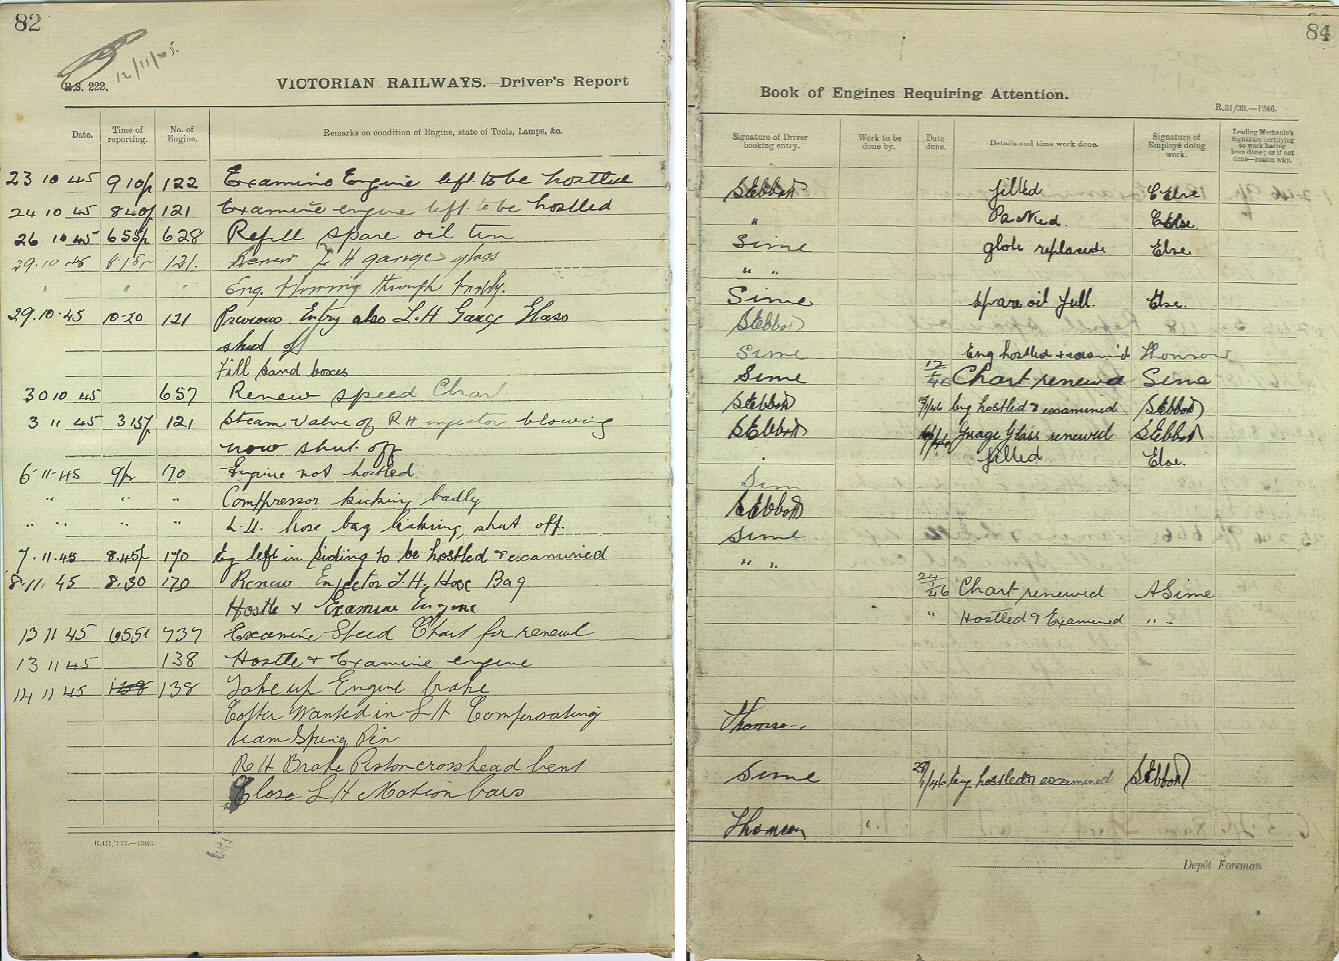 82
12/11/45.
R.S. 222.
VICTORIAN RAILWAYS.—Driver's Report
Date. Time of reporting. No. of Engine. Remarks on condition of Engine, state of Tools, Lamps, &c.
23 10 45 9 10p 122 Examine Engine left to be hostled
24 10 45 840p 121 Examine engine left to be hostled
26 10 45 655p 628 Refill spare oil tin
29.10.45 121. Renew L H gauge glass
" " " Eng. through badly.
29.10.45 10-20 121 Previous Entry also L.H Gauge Glass
shut off
Fill sand boxes
30 10 45 657 Renew speed Chart
3 11 45 3 15p 121 Steam valve of R H injector blowing
now shut off
6-11-45 9p 170 Engine not hostled
" " " Compressor kicking badly
" " " " L.H. hose bag leaking, shut off.
7.11.45 8.45p 170 Eng left in siding to be hostled & examined
8.11.45 8.30 170 Renew L.H. Hose Bag
Hostle & Examine Engine
13 11 45 737 Examine Speed Chart for renewal
13 11 45 138 Hostle & Examine engine
14 11 45 138 138 Take up Engine brake
Cotter Wanted in L H Compensating
Beam Spring Pin
R H Brake Piston crosshead bent
Close L H Motion bars
84
Book of Engines Requiring Attention.
R.31/39.—1246.
Signature of Driver booking entry. Work to be done by. Date done. Details and time work done. Signature of Employé doing work. Leading Mechanic's Signature certifying to work having been done; or if not done—reason why.
Stebbon filled Else
" Packed. Else
Sime globe replaced Else
" "
Sime spare oil full. Else.
Stebbon
Sime Eng hostled & Thomson
Sime Chart renewed Sime
Stebbon Eng hostled & examined Stebbon
Stebbon Guage Glass renewed Stebbon
filled Else.
Sim
Stebbon
Sime
" "
Chart renewed A Sime
" Hostled & Examined " "
Thomson
Sime Eng hostled & examined Stebbon
Thomson "
Depôt Foreman